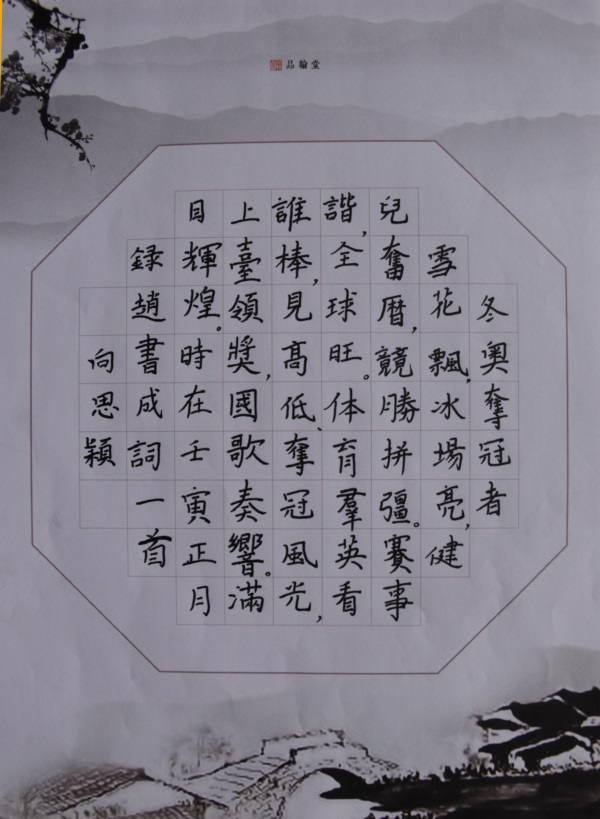 品翰堂
冬奥奪冠者
雪花飄,冰場亮,健
兒奮曆,競勝拼彊。賽事
諧,全球旺。体育羣英看
誰棒,見高低、奪冠風光,
上臺領獎,國歌奏響。滿
目輝煌。時在壬寅正月
録趙書成詞一首
向思穎